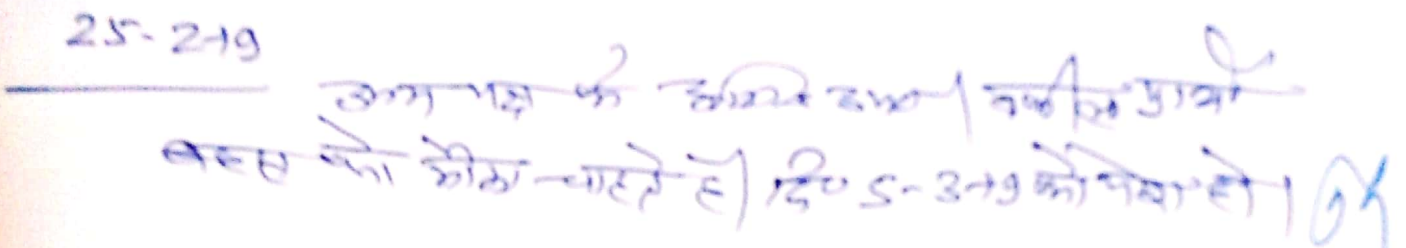 25-2-19
उभय पक्ष के वकील प्रार्थी
बहस को मौका चाहते हैं। दि० 5-3-19 को पेश हो।